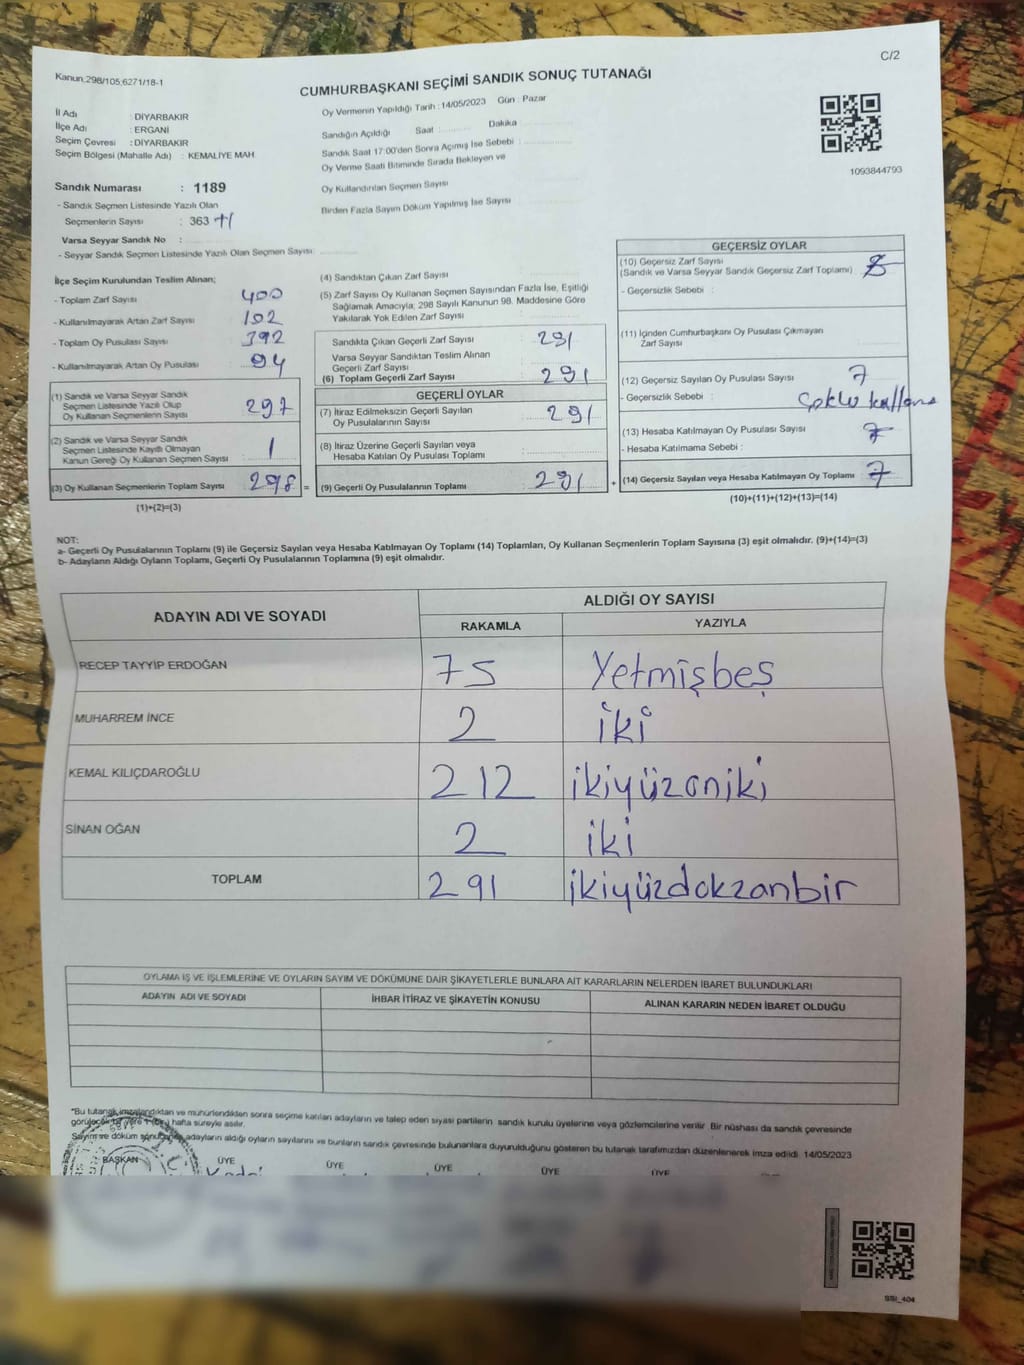 Kanun:298/105,6271/18-1
C/2
CUMHURBAŞKANI SEÇİMİ SANDIK SONUÇ TUTANAĞI
İl Adı : DİYARBAKIR
İlçe Adı : ERGANİ
Seçim Çevresi : DİYARBAKIR
Seçim Bölgesi (Mahalle Adı) : KEMALİYE MAH
Oy Vermenin Yapıldığı Tarih : 14/05/2023 Gün : Pazar
Sandığın Açıldığı Saat : Dakika
Sandık Saat 17:00'den Sonra Açımış İse Sebebi :
Oy Verme Saati Bitiminde Sırada Bekleyen ve
Oy Kullandırılan Seçmen Sayısı
Birden Fazla Sayım Döküm Yapılmış İse Sayısı :
1093844793
Sandık Numarası : 1189
- Sandık Seçmen Listesinde Yazılı Olan
Seçmenlerin Sayısı : 363 +1
Varsa Seyyar Sandık No :
- Seyyar Sandık Seçmen Listesinde Yazılı Olan Seçmen Sayısı:
İlçe Seçim Kurulundan Teslim Alınan;
- Toplam Zarf Sayısı 400
- Kullanılmayarak Artan Zarf Sayısı 102
- Toplam Oy Pusulası Sayısı 392
- Kullanılmayarak Artan Oy Pusulası 94
(1) Sandık ve Varsa Seyyar Sandık
Seçmen Listesinde Yazılı Olup
Oy Kullanan Seçmenlerin Sayısı 297
(2) Sandık ve Varsa Seyyar Sandık
Seçmen Listesinde Kayıtlı Olmayan
Kanun Gereği Oy Kullanan Seçmen Sayısı 1
(3) Oy Kullanan Seçmenlerin Toplam Sayısı 298 =
(1)+(2)=(3)
(4) Sandıktan Çıkan Zarf Sayısı
(5) Zarf Sayısı Oy Kullanan Seçmen Sayısından Fazla İse, Eşitliği
Sağlamak Amacıyla; 298 Sayılı Kanunun 98. Maddesine Göre
Yakılarak Yok Edilen Zarf Sayısı
Sandıkta Çıkan Geçerli Zarf Sayısı 291
Varsa Seyyar Sandıktan Teslim Alınan
Geçerli Zarf Sayısı
(6) Toplam Geçerli Zarf Sayısı 291
GEÇERLİ OYLAR
(7) İtiraz Edilmeksizin Geçerli Sayılan
Oy Pusulasının Sayısı 291
(8) İtiraz Üzerine Geçerli Sayılan veya
Hesaba Katılan Oy Pusulası Toplamı
(9) Geçerli Oy Pusulalarının Toplamı 291 +
GEÇERSİZ OYLAR
(10) Geçersiz Zarf Sayısı
(Sandık ve Varsa Seyyar Sandık Geçersiz Zarf Toplamı)
- Geçersizlik Sebebi :
(11) İçinden Cumhurbaşkanı Oy Pusulası Çıkmayan
Zarf Sayısı
(12) Geçersiz Sayılan Oy Pusulası Sayısı 7
- Geçersizlik Sebebi :
(13) Hesaba Katılmayan Oy Pusulası Sayısı 7
- Hesaba Katılmama Sebebi :
(14) Geçersiz Sayılan veya Hesaba Katılmayan Oy Toplamı 7
(10)+(11)+(12)+(13)=(14)
NOT:
a- Geçerli Oy Pusulalarının Toplamı (9) ile Geçersiz Sayılan veya Hesaba Katılmayan Oy Toplamı (14) Toplamları, Oy Kullanan Seçmenlerin Toplam Sayısına (3) eşit olmalıdır. (9)+(14)=(3)
b- Adayların Aldığı Oyların Toplamı, Geçerli Oy Pusulalarının Toplamına (9) eşit olmalıdır.
ADAYIN ADI VE SOYADI
ALDIĞI OY SAYISI
RAKAMLA YAZIYLA
RECEP TAYYİP ERDOĞAN 75 Yetmişbeş
MUHARREM İNCE 2 iki
KEMAL KILIÇDAROĞLU 212 ikiyüzoniki
SİNAN OĞAN 2 iki
TOPLAM 291 ikiyüzdokzanbir
OYLAMA İŞ VE İŞLEMLERİNE VE OYLARIN SAYIM VE DÖKÜMÜNE DAİR ŞİKAYETLERLE BUNLARA AİT KARARLARIN NELERDEN İBARET BULUNDUKLARI
ADAYIN ADI VE SOYADI İHBAR İTİRAZ VE ŞİKAYETİN KONUSU ALINAN KARARIN NEDEN İBARET OLDUĞU
*Bu tutanak imzalandıktan ve mühürlendikten sonra seçime katılan adayların ve talep eden siyasi partilerin sandık kurulu üyelerine veya gözlemcilerine verilir. Bir nüshası da sandık çevresinde
görülecek bir yere 1 (bir) hafta süreyle asılır.
Sayım ve döküm sonunda adayların aldığı oyların sayılarını ve bunların sandık çevresinde bulunanlara duyurulduğunu gösteren bu tutanak tarafımızdan düzenlenerek imza edildi. 14/05/2023
BAŞKAN ÜYE ÜYE ÜYE ÜYE ÜYE
SSI_404